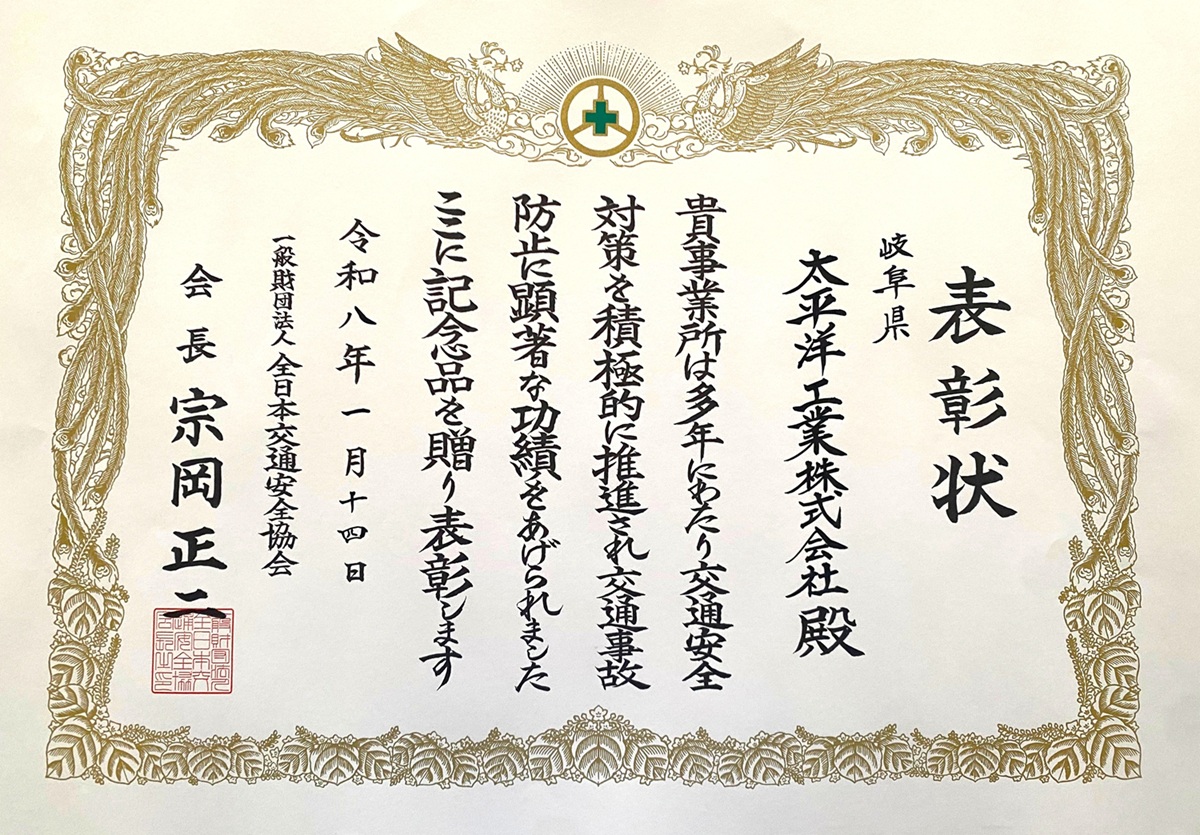 表彰状
岐阜県
太平洋工業株式会社 殿
貴事業所は多年にわたり交通安全
対策を積極的に推進され交通事故
防止に顕著な功績をあげられました
ここに記念品を贈り表彰します
令和八年一月十四日
一般財団法人 全日本交通安全協会
会長 宗岡正二